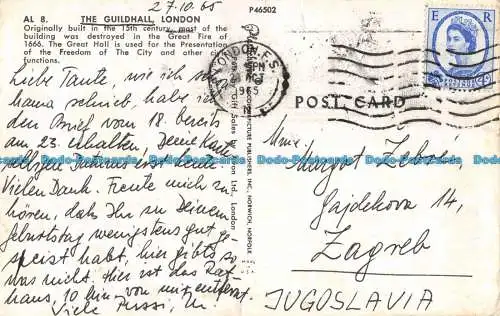 27.10.65
P46502
AL 8. THE GUILDHALL, LONDON
Originally built in the 15th century, most of the
building was destroyed in the Great Fire of
1666. The Great Hall is used for the Presentation
of the Freedom of The City and other
functions.
Liebe Tante, wie ich schon
Mama schrieb, habe ich
den Brief vom 18. bereits
am 23. erhalten. Deine Karte
Vielen Dank. Freute mich zu
hören, dass Ihr zu Deinem
Geburtstag wenigstens gut ge-
speist habt, hier gibt's so
was nicht. Hier ist das Rat-
haus, 10 min von mir entfernt.
Viele Bussi,
LONDON
PM
OCT
1965
E R
POST CARD
Mme.
Margot
Gajdekova 14,
Zagreb
JUGOSLAVIA
Do-Postcards.com